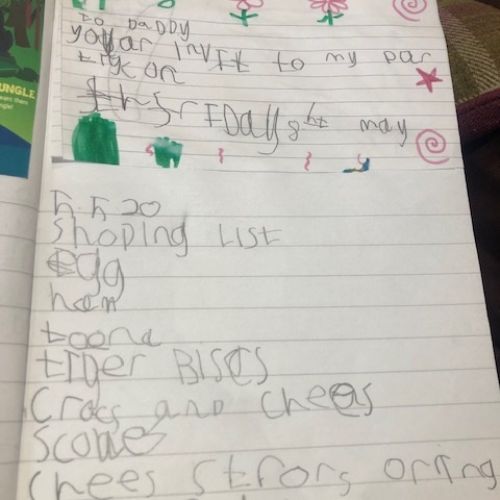 UNGLE
to DaDDy
yoUar InvIt to my par
tiy on
frIDay 8ht may
5.5.20
Shoping LIST
Egg
ham
toona
tIger BISCS
Cracs and chees
Scones
chees Strors orring